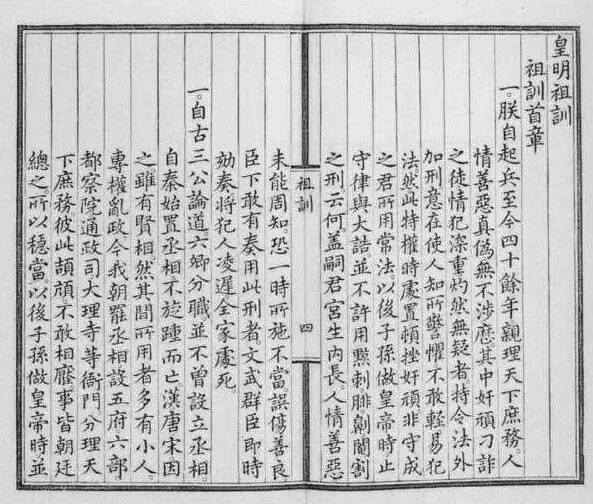 皇明祖訓
祖訓首章
一。朕自起兵至今四十餘年。親理天下庶務。人
情善惡真偽無不涉歷。其中奸頑刁詐
之徒。情犯深重。灼然無疑者。特令法外
加刑。意在使人知所警懼。不敢輕易犯
法。然此特權時處置頓挫奸頑。非守成
之君所用常法。以後子孫做皇帝時。止
守律與大誥。並不許用黥刺腓劓閹割
之刑。云何。蓋嗣君宮生內長。人情善惡
祖訓
四
未能周知。恐一時所施不當。誤傷善良。
臣下敢有奏用此刑者。文武群臣即時
劾奏。將犯人凌遲。全家處死。
一。自古三公論道。六卿分職。並不曾設立丞相。
自秦始置丞相。不旋踵而亡。漢唐宋因
之。雖有賢相。然其間所用者多有小人。
專權亂政。今我朝罷丞相。設五府六部。
都察院通政司大理寺等衙門。分理天
下庶務。彼此頡頏。不敢相壓。事皆朝廷
總之。所以穩當。以後子孫做皇帝時。並